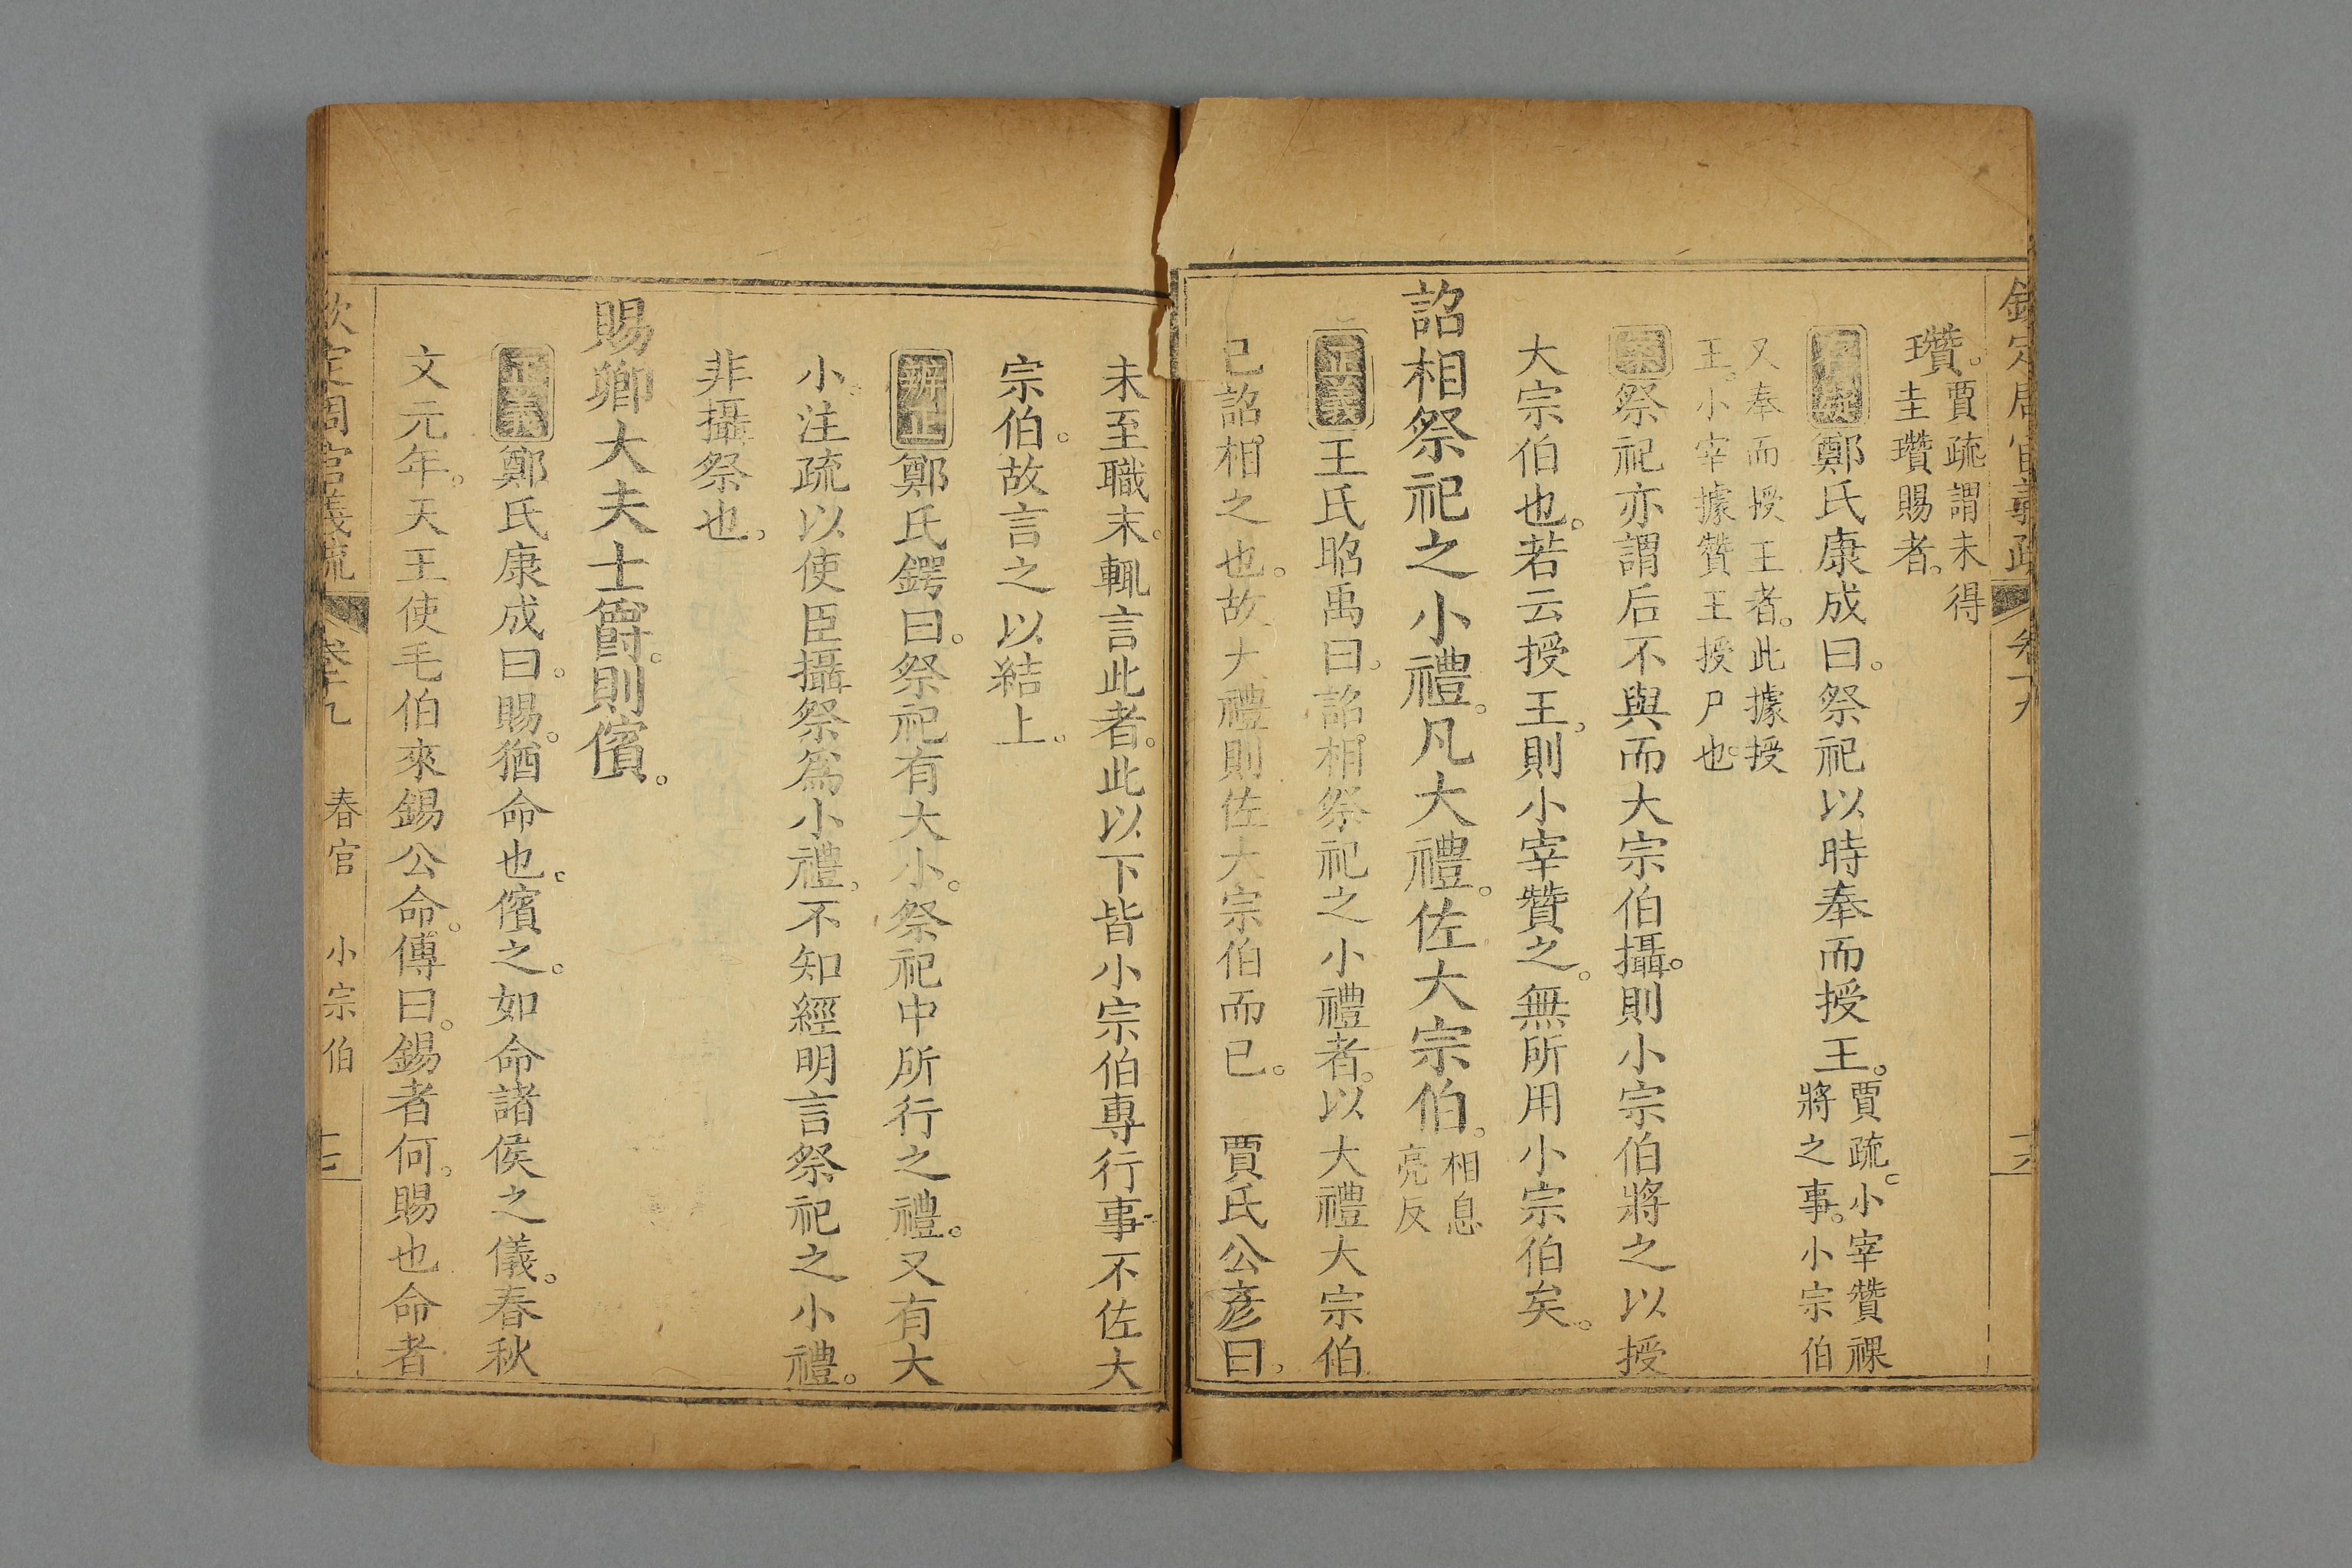 欽定周官義疏 卷十九 十六
瓚。賈疏謂未得
圭瓚賜者。
鄭氏康成曰。祭祀以時奉而授王。賈疏。小宰贊祼
將之事。小宗伯
又奉而授王者。此據授
王。小宰據贊王授尸也。
案祭祀亦謂后不與而大宗伯攝。則小宗伯將之以授
大宗伯也。若云授王。則小宰贊之。無所用小宗伯矣。
詔相祭祀之小禮。凡大禮。佐大宗伯。相息
亮反
正義王氏昭禹曰。詔相祭祀之小禮者。以大禮大宗伯
已詔相之也。故大禮則佐大宗伯而已。 賈氏公彥曰。
未至職末。輒言此者。此以下皆小宗伯專行事不佐大
宗伯。故言之以結上。
辨正鄭氏鍔曰。祭祀有大小。祭祀中所行之禮。又有大
小。注疏以使臣攝祭爲小禮。不知經明言祭祀之小禮。
非攝祭也。
賜卿大夫士爵。則儐。
正義鄭氏康成曰。賜。猶命也。儐之。如命諸侯之儀。春秋
文元年。天王使毛伯來錫公命。傳曰。錫者何。賜也命者
欽定周官義疏 卷十九 春官 小宗伯 十七